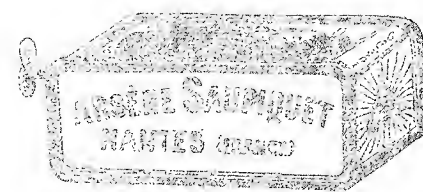 ARSÈNE SAUPIQUET
NANTES (FRANCE)